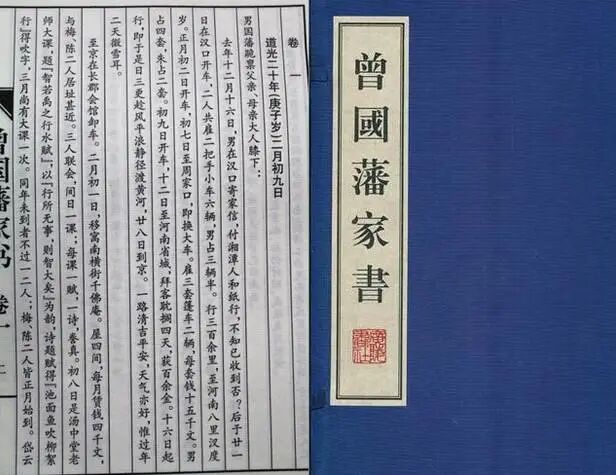 卷 一
道光二十年(庚子岁)二月初九日
男国藩跪禀父亲、母亲大人膝下：
去年十二月十六日，男在汉口寄家信，付湘潭人和纸行，不知已收到否？后于廿一
日在汉口开车，二人共雇二把手小车六辆，男占三辆半。行三百余里，至河南八里汊度
岁。正月初二日开车，初七日至周家口，即换大车。雇三套篷车二辆，每套钱十五千文。男
占四套，朱占二套。初九日开车，十二日至河南省城，拜客耽搁四天，获百余金。十六日起
行，即于是日三更趁风平浪静径渡黄河，廿八日到京。一路清吉平安，天气亦好，惟过年
二天微雪耳。
至京在长郡会馆卸车。二月初一日，移寓南横街千佛庵。屋四间，每月赁钱四千文，
与梅、陈二人居址甚近。三人联会，间日一课；每课一赋，一诗，誊真。初八日是汤中堂老
师大课，题“智若禹之行水赋”，以“行所无事，则智大矣”为韵，诗题赋得“池面鱼吹柳絮
行”得吹字，三月尚有大课一次。同年未到者不过一二人；梅、陈二人皆正月始到。岱云
曾国藩家书 卷一
曾國藩家書